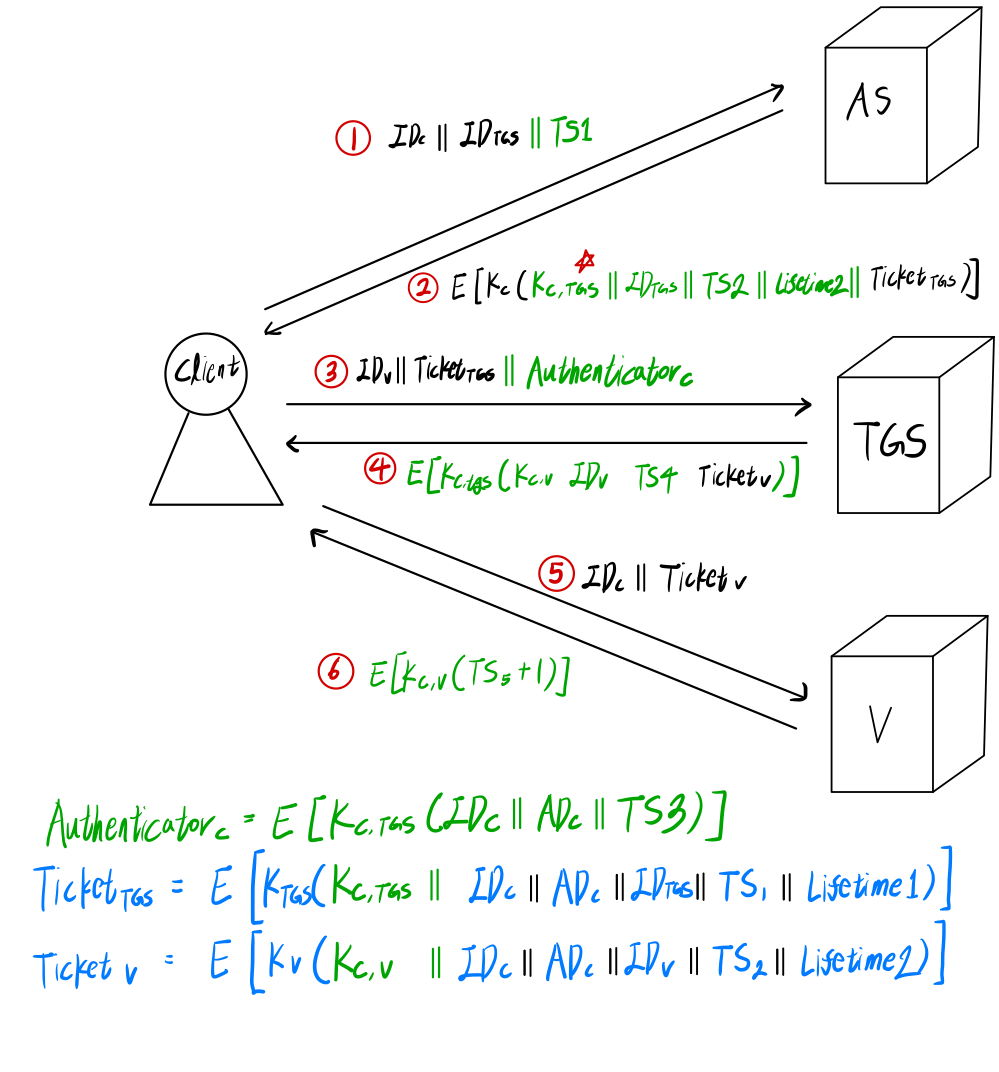 AS
① IDc || IDTGS || TS1
② E[Kc(Kc,TGS || IDTGS || TS2 || Lifetime2 || TicketTGS)]
Client
③ IDv || TicketTGS || Authenticatorc
TGS
④ E[Kc,tgs(Kc,v IDv TS4 Ticketv)]
⑤ IDc || Ticketv
⑥ E[Kc,v(TS5+1)]
V
Authenticatorc = E[Kc,TGS(IDc || ADc || TS3)]
TicketTGS = E[KTGS(Kc,TGS || IDc || ADc || IDTGS || TS1 || Lifetime1)]
Ticketv = E[Kv(Kc,v || IDc || ADc || IDv || TS2 || Lifetime2)]